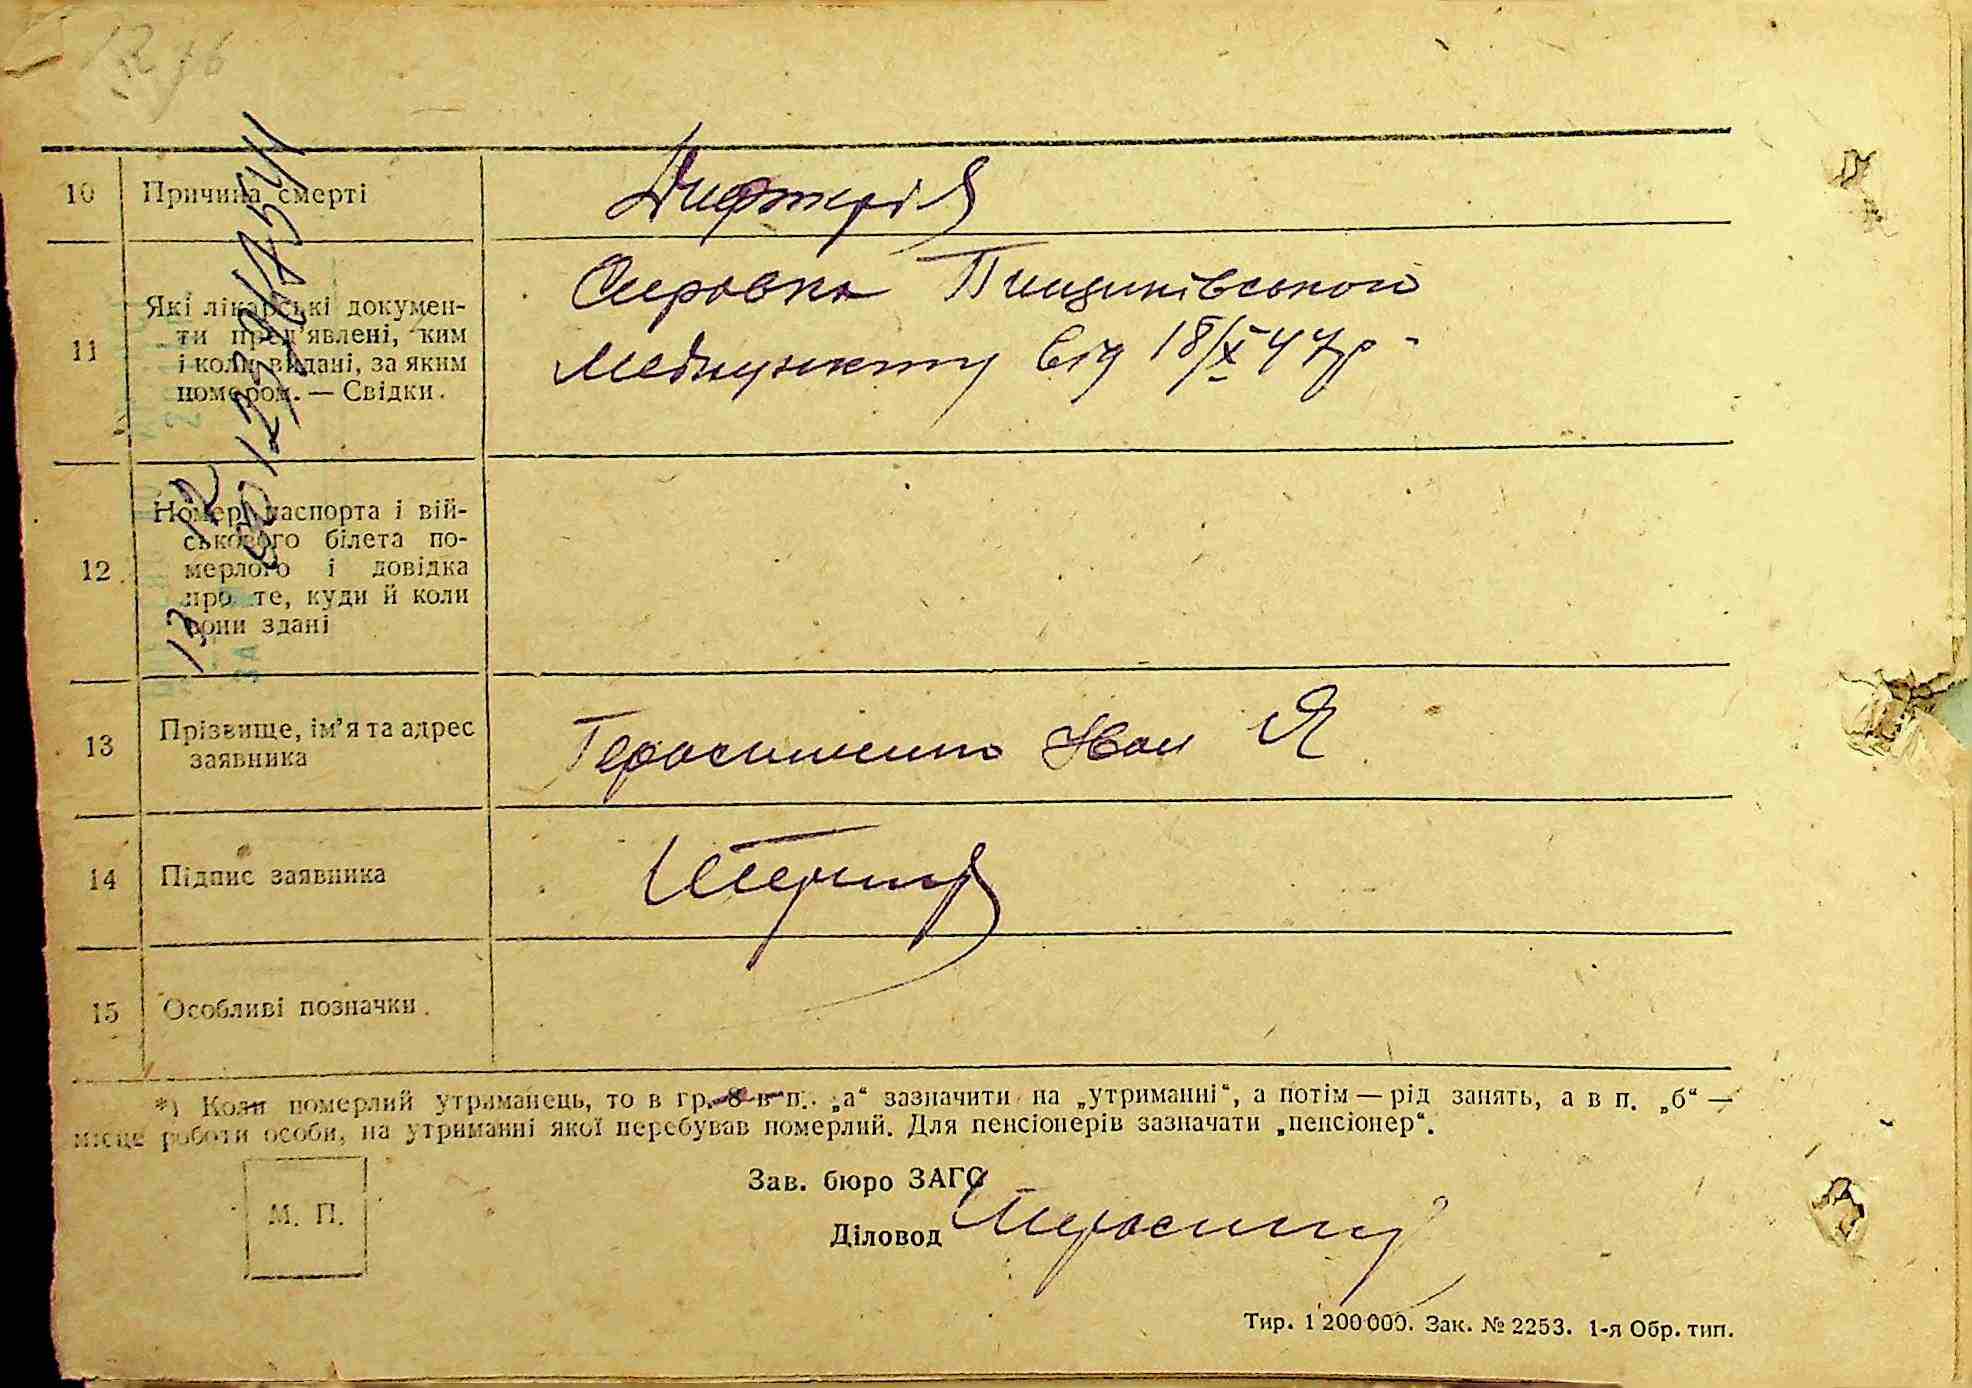 10 Причина смерті Дифтерія
11 Які лікарські докумен-
ти пред'явлені, ким
і коли видані, за яким
номером. — Свідки.
Справка Пищиківської
Медпункту від 18/X 47р
12 Номер паспорта і вій-
ськового білета по-
мерлого і довідка
про те, куди й коли
вони здані
13 Прізвище, ім'я та адрес
заявника
Герасименко Іван Я
14 Підпис заявника
15 Особливі позначки.
*) Коли померлий утриманець, то в гр. 8 в п. „а“ зазначити на „утриманні“, а потім — рід занять, а в п. „б“ —
місце роботи особи, на утриманні якої перебував померлий. Для пенсіонерів зазначати „пенсіонер“.
М. П.
Зав. бюро ЗАГС
Діловод
Тир. 1 200 000. Зак. № 2253. 1-я Обр. тип.